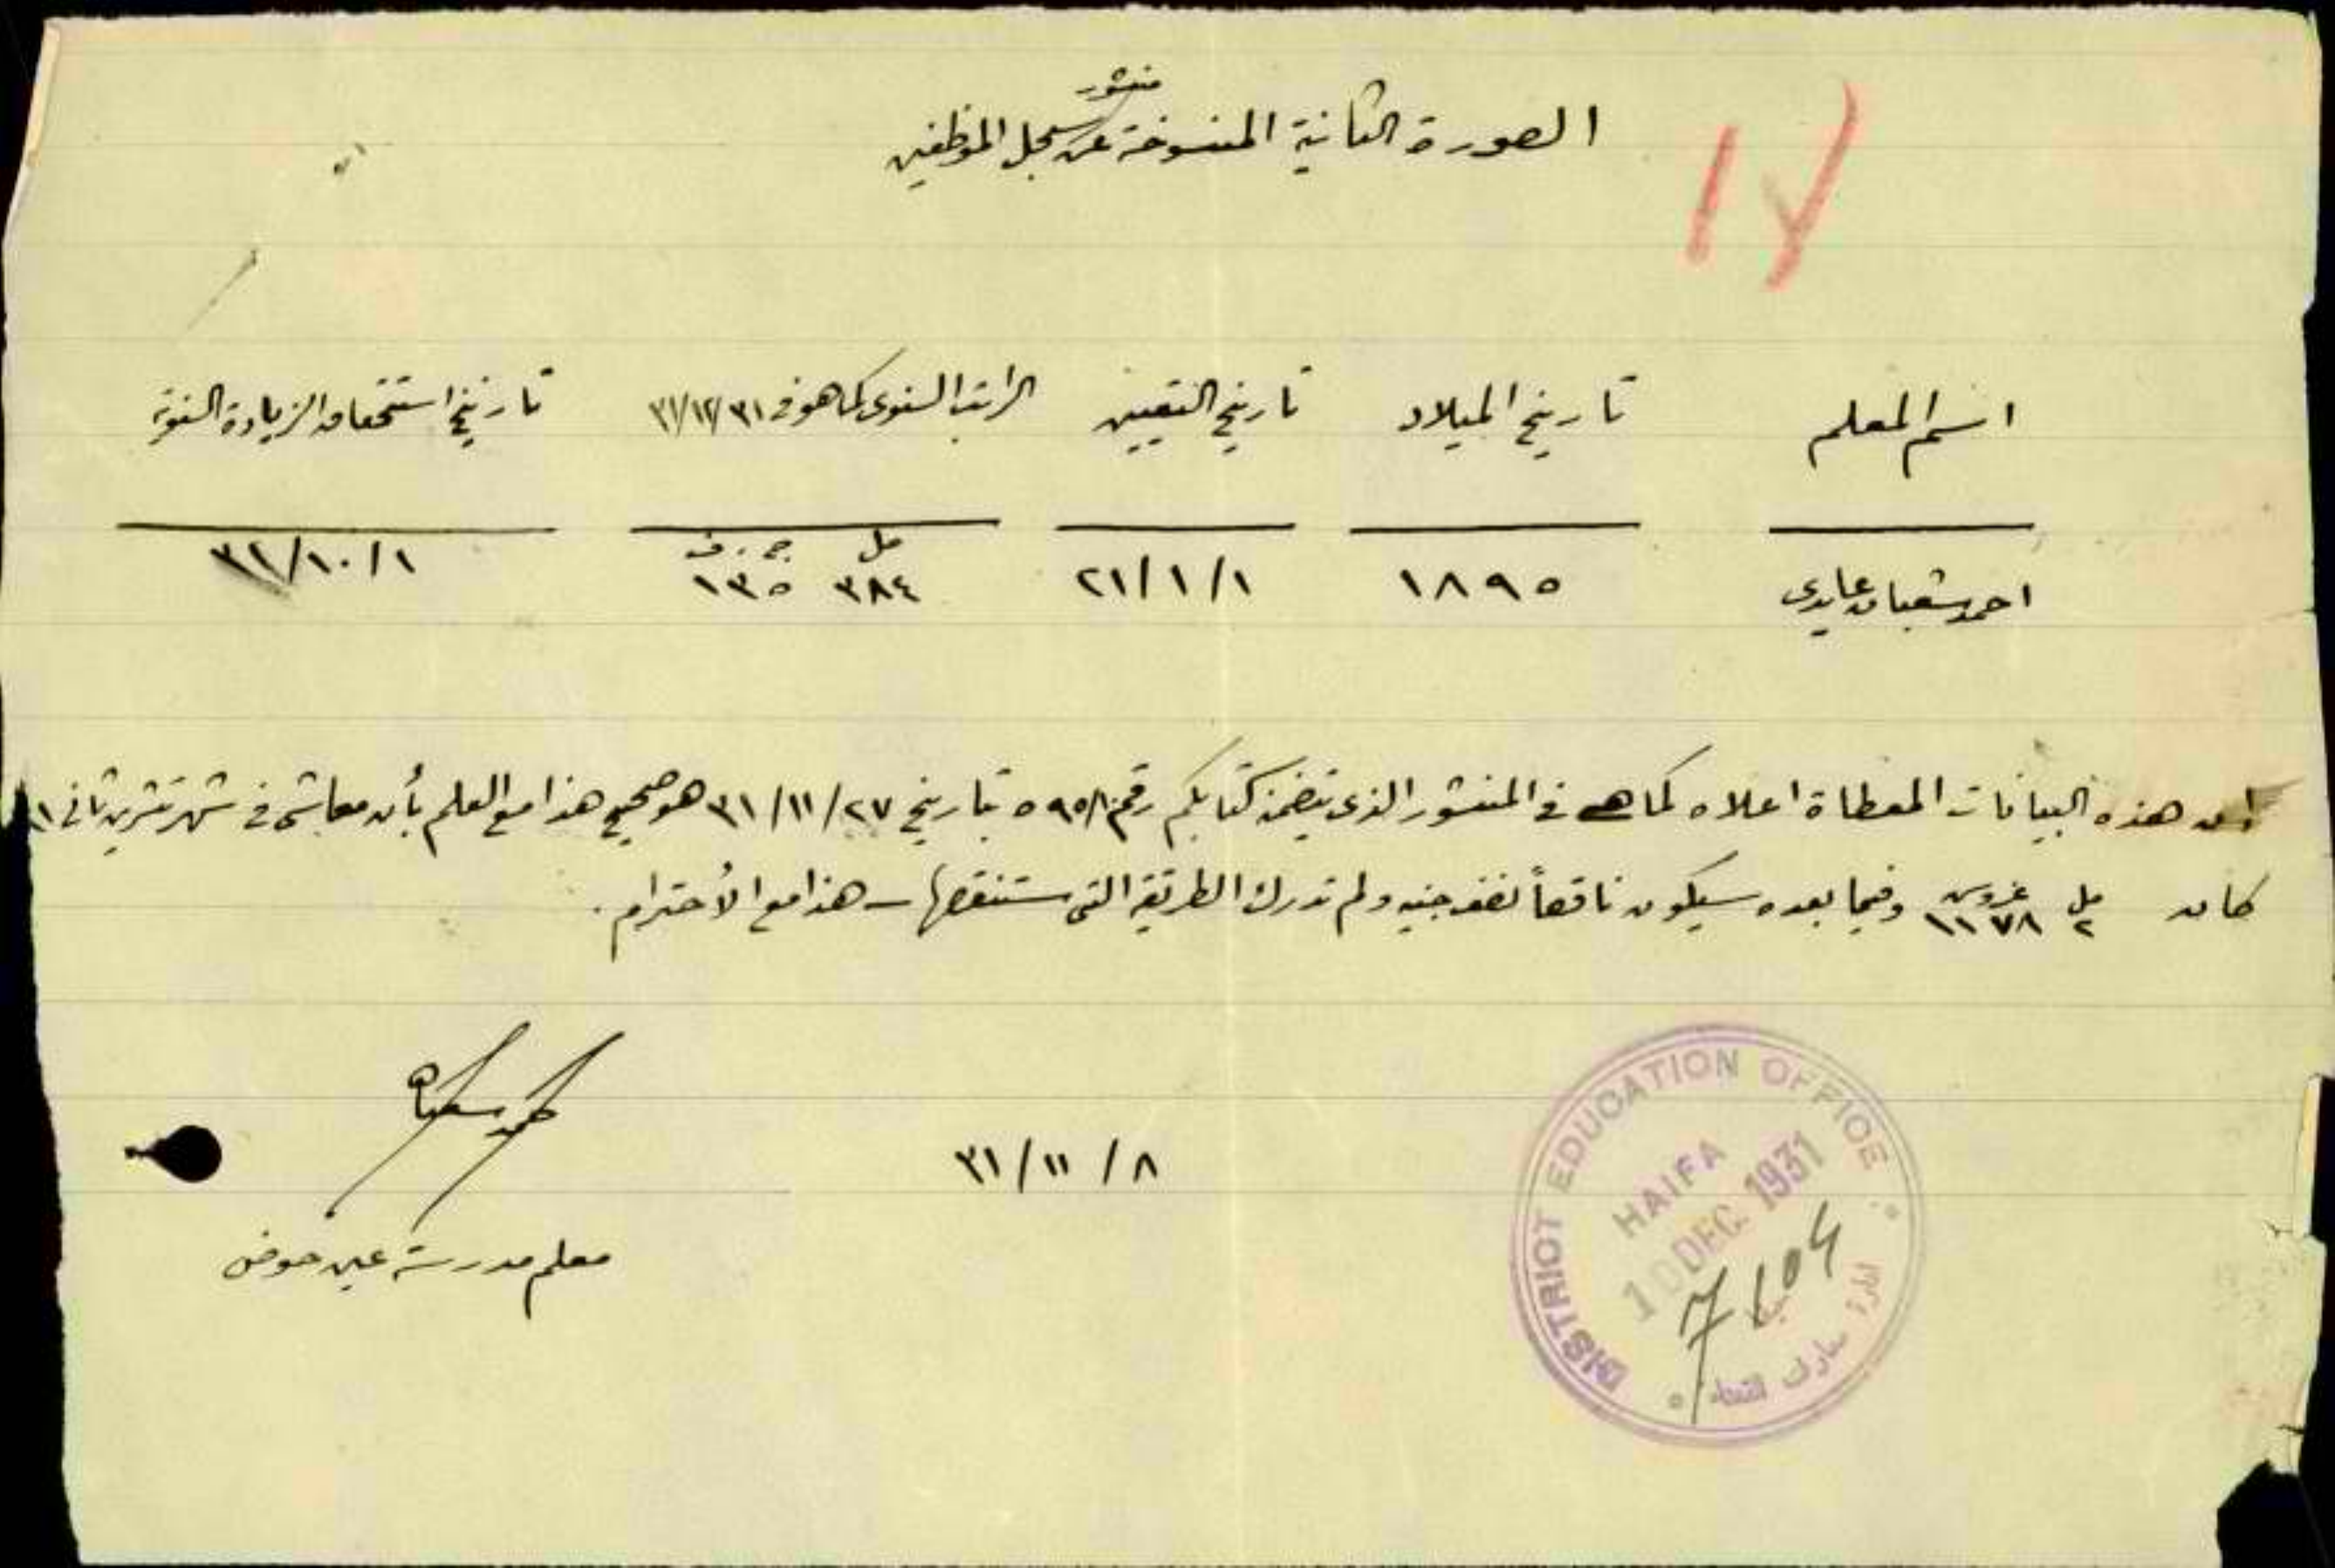 منشور
الصورة الثانية المنسوخة عن سجل الموظفين
١٧
اسم المعلم تاريخ الميلاد تاريخ التعيين الراتب السنوي كما هو في ٣١/١٢/٣١ تاريخ استحقاق الزيادة السنوية
مل ج.ف
احمد شعبان عابدي ١٨٩٥ ٢١/١/١ ٣٨٤ ١٣٥ ٣٢/١٠/١
ان هذه البيانات المعطاة اعلاه كما هي في المنشور الذي يتضمنه كتابكم رقم ٥٩٥/١ بتاريخ ٣١/١١/٢٧ هو صحيح هذا مع العلم بأن معاشي في شهر تشرين ثاني ٣١
كان ٢ مل ١١٧٨ غروش وفيما بعده سيكون ناقصاً نصف جنيه ولم ندرك الطريقة التي ستنقصها - هذا مع الأحترام .
احمد شعبان
٣١/١١/٨
معلم مدرسة عين حوض
DISTRICT EDUCATION OFFICE
HAIFA
10 DEC 1931
7104